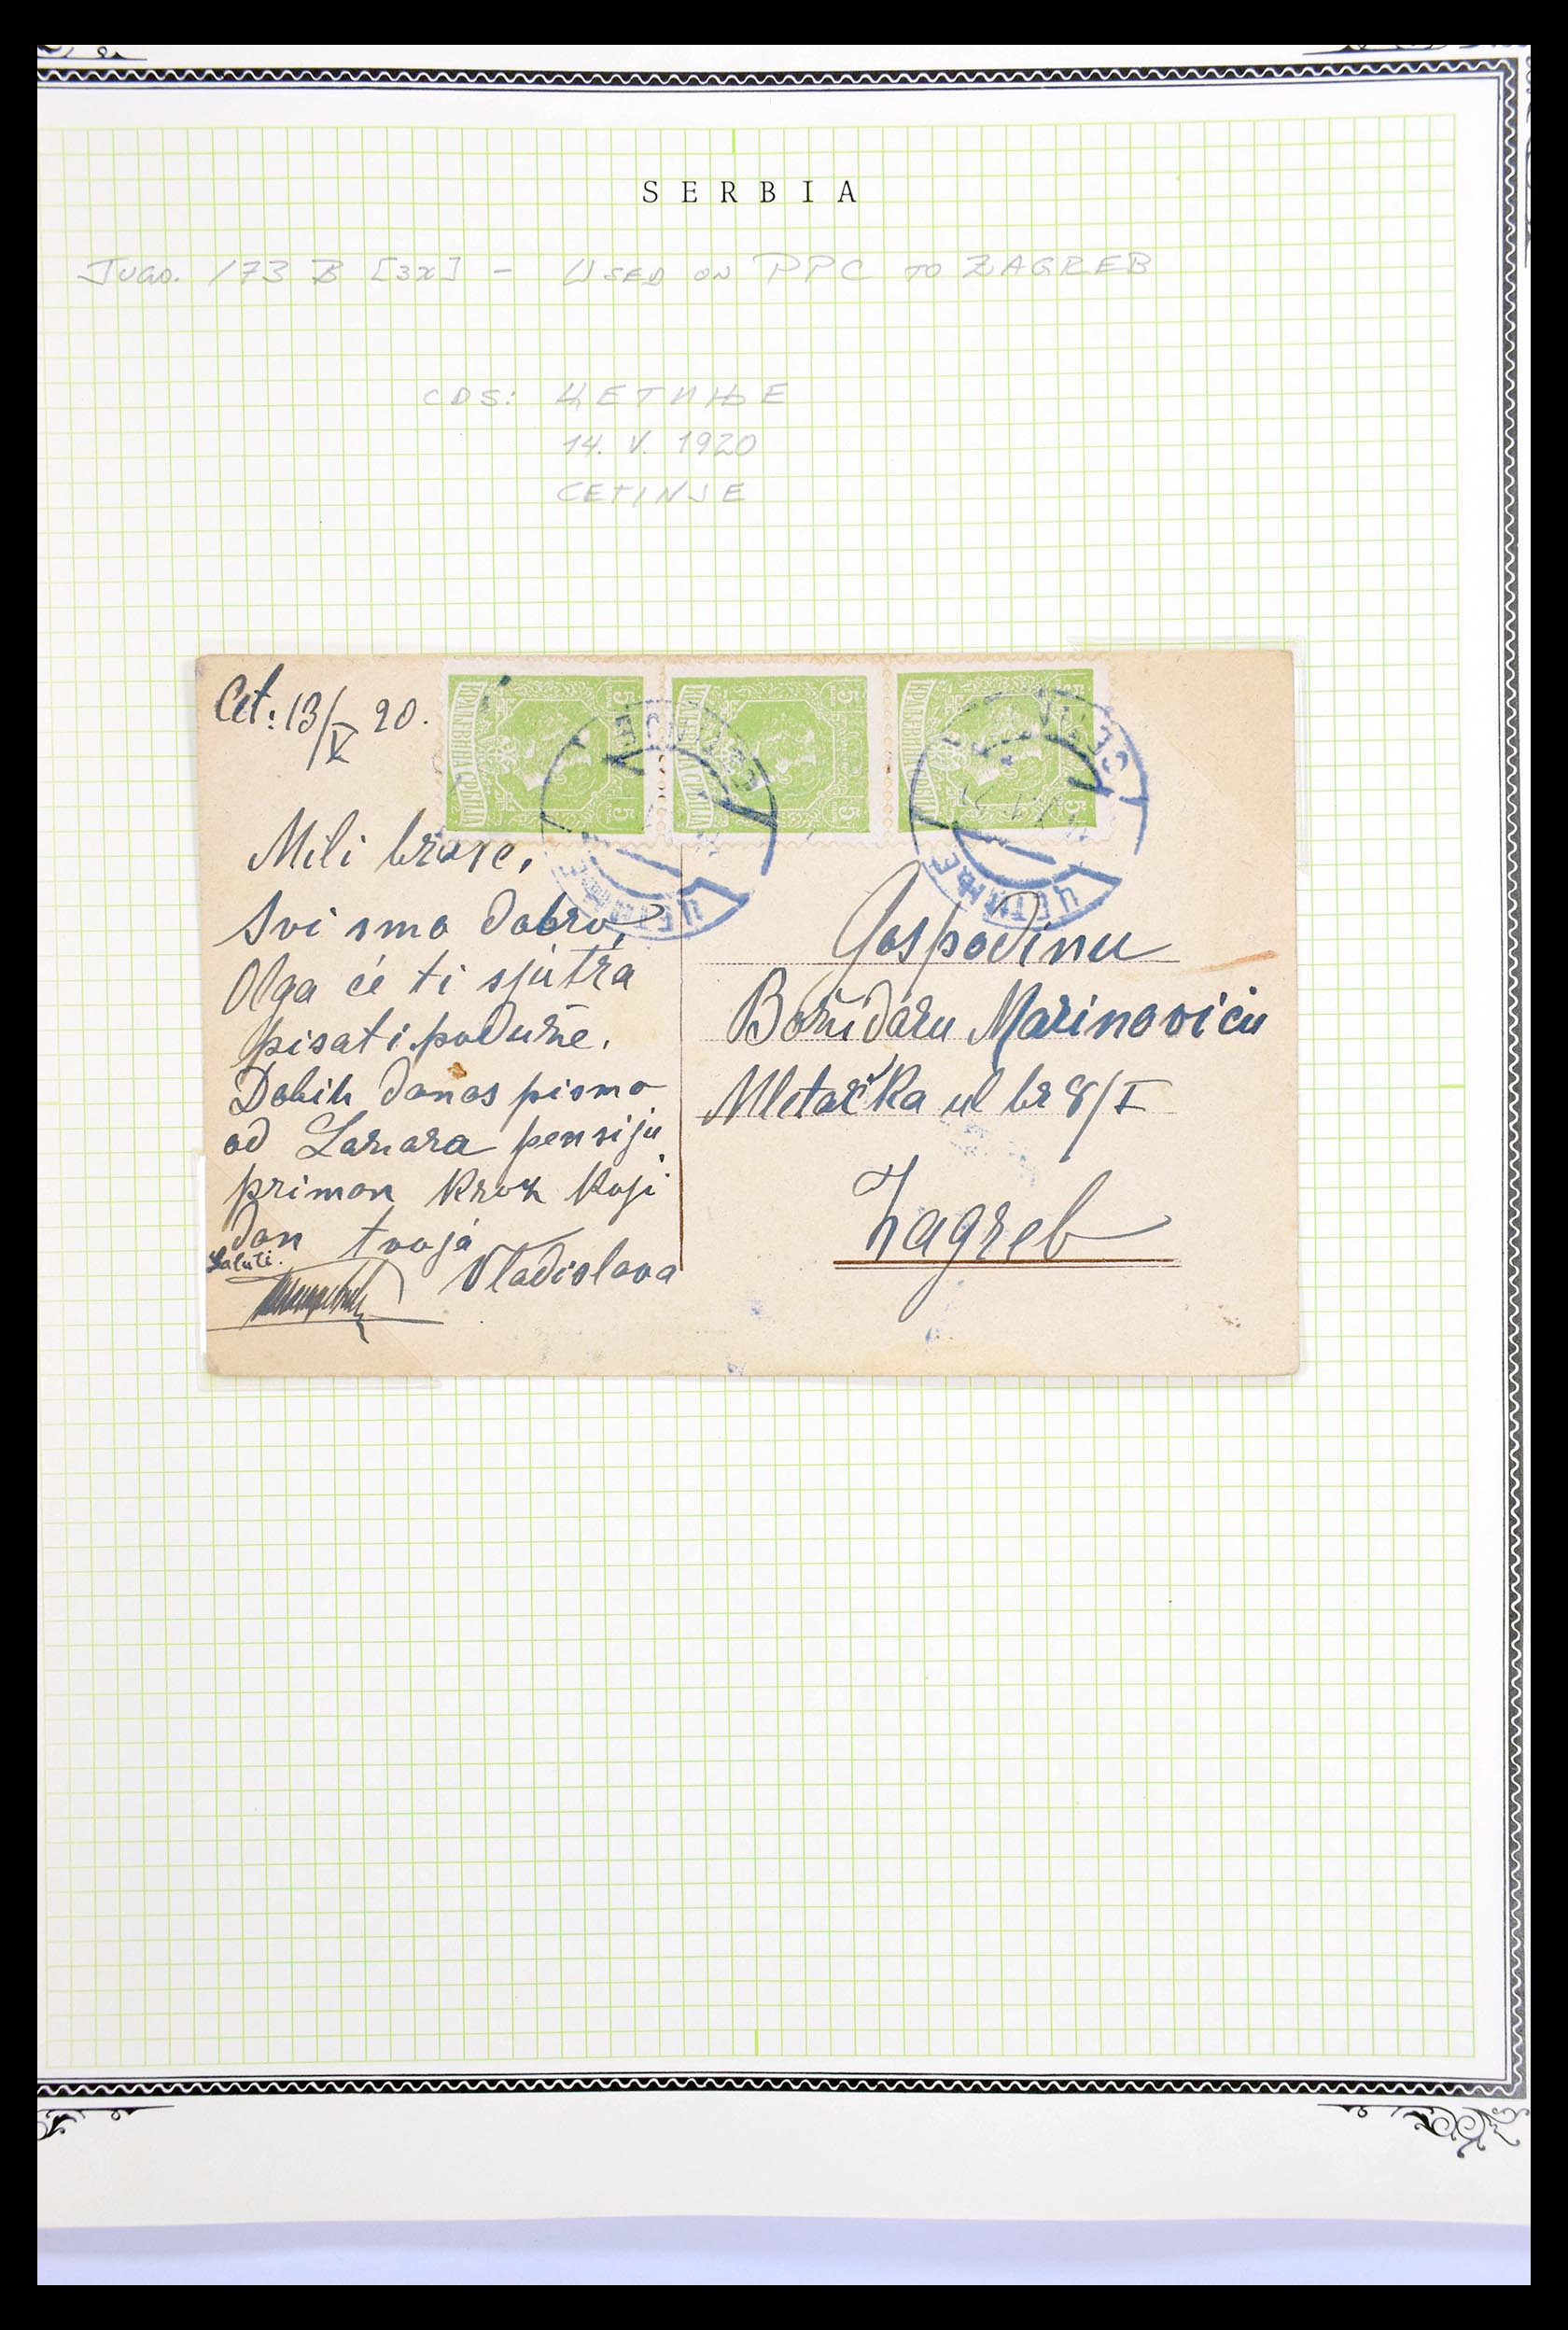 SERBIA
Jugo. 173 B [3x] - USED ON PPC TO ZAGREB
CDS: ЦЕТИЊЕ
14. V. 1920
CETINJE
Cet: 13/V 20.
КРАЉЕВИНА СРБИЈА 5 5
КРАЉЕВИНА СРБИЈА 5 5
КРАЉЕВИНА СРБИЈА 5
CETINJE ЦЕТИЊЕ
CETINJE ЦЕТИЊЕ
Mili
Svi smo dobro,
Olga će ti sjutra
pisati poduže.
Dobih danas pismo
od Lazara pensiju
primam kroz koji
dan tvoja
Vladislava
Saluti.
Gospodinu
Božidaru Marinoviću
Mletačka ul br 8/I
Zagreb